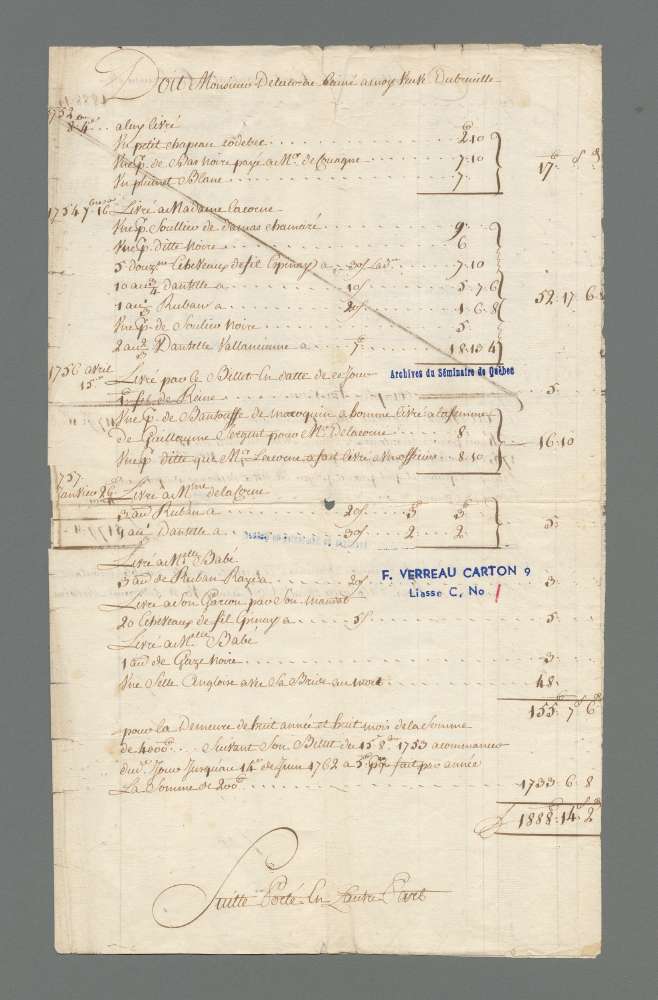 Doit Monsieur Delacorne L'ainé a moy Veuve Dubreuille
1752
8 4re a luy livré
Un petit chapeau codebec 2.10
Une p. de Bas noire payé a Mr. de Couagne 7.10
Un plumet Blanc 7. 17
1754 7bre 16 Livré a Madame Lacorne
Une p. Soullier de damas chamaré 9.
Une p. ditte Noire 6
5 douzne Echeveaux de fil Epinay a 30s La d. 7.10
10 au 3/4 Dantelle a 10s 5.7.6
1 au 1/3 Ruban a 20s 1.6.8
Une p. de Soulier Noire 5.
2 au 2/3 Dantelle Vallancienne a 7 18.13.4
52.17.6
1756 avril
15 Livré par le Billet En datte de ce Jour
fil de Reine 5.
Une p. de Bantouffe de maroquin a homme livré a la femme
de Guillaume Sergent pour Mr. Delacorne 8
Une p. ditte que Mr. Lacorne a fait livré 8.10
16.10
1757
Janvier 26 Livré a Mme de la Corne
3 au Ruban a 20s 3 3
4 au Dantelle a 30s 2. 2.
5.
Livré a Mlle Babé
3 au de Ruban Rayé a 20s 3.
Livré a son Garcon par Son mandat
20 Echeveaux de fil Epinay a 5s 5.
Livré a Mlle Babé
1 au de Gaze noire 3.
Une Selle Angloise avec Sa Bride au mort 48
155 7 6
pour la Demeure de huit année et huit mois de la Somme
de 4000 Suivant Son Billet du 15 8 1753 a commancer
du d. Jour Jusqu'au 14 de Juin 1762 a 5 p% fait par année
La Somme de 200 1733.6.8
1888.14.2
Suitte Porté En Lautre Part
Archives du Séminaire de Québec
F. VERREAU CARTON 9
Liasse C, No 1